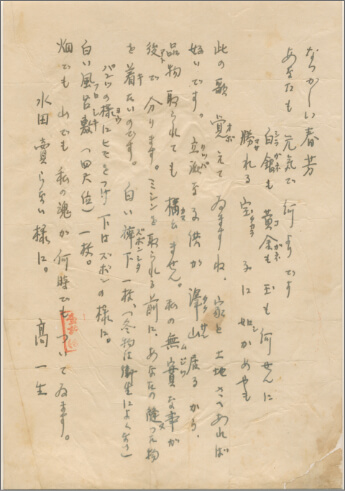 なつかしい春芳
あなたも元気で何よりです
白銀も黄金も玉も何せんに
勝れる宝子に如かめやも
此の歌覚えてゐますね、家と土地さへあれば
好いです。立派な子供が澤山居るから、
品物取られても構ひません。私の無實な事が
後で分ります。ミシンを取られる前に、あなたの縫った物
を着たいのです。白い褌下一枚、(冬物は
パンツの様にヒモをつけ下はズボンの様に。
白い風呂敷(四大位)一枚。
畑でも山でも私の魂が何時でもついてゐます。
水田賣らない様に。
高一生